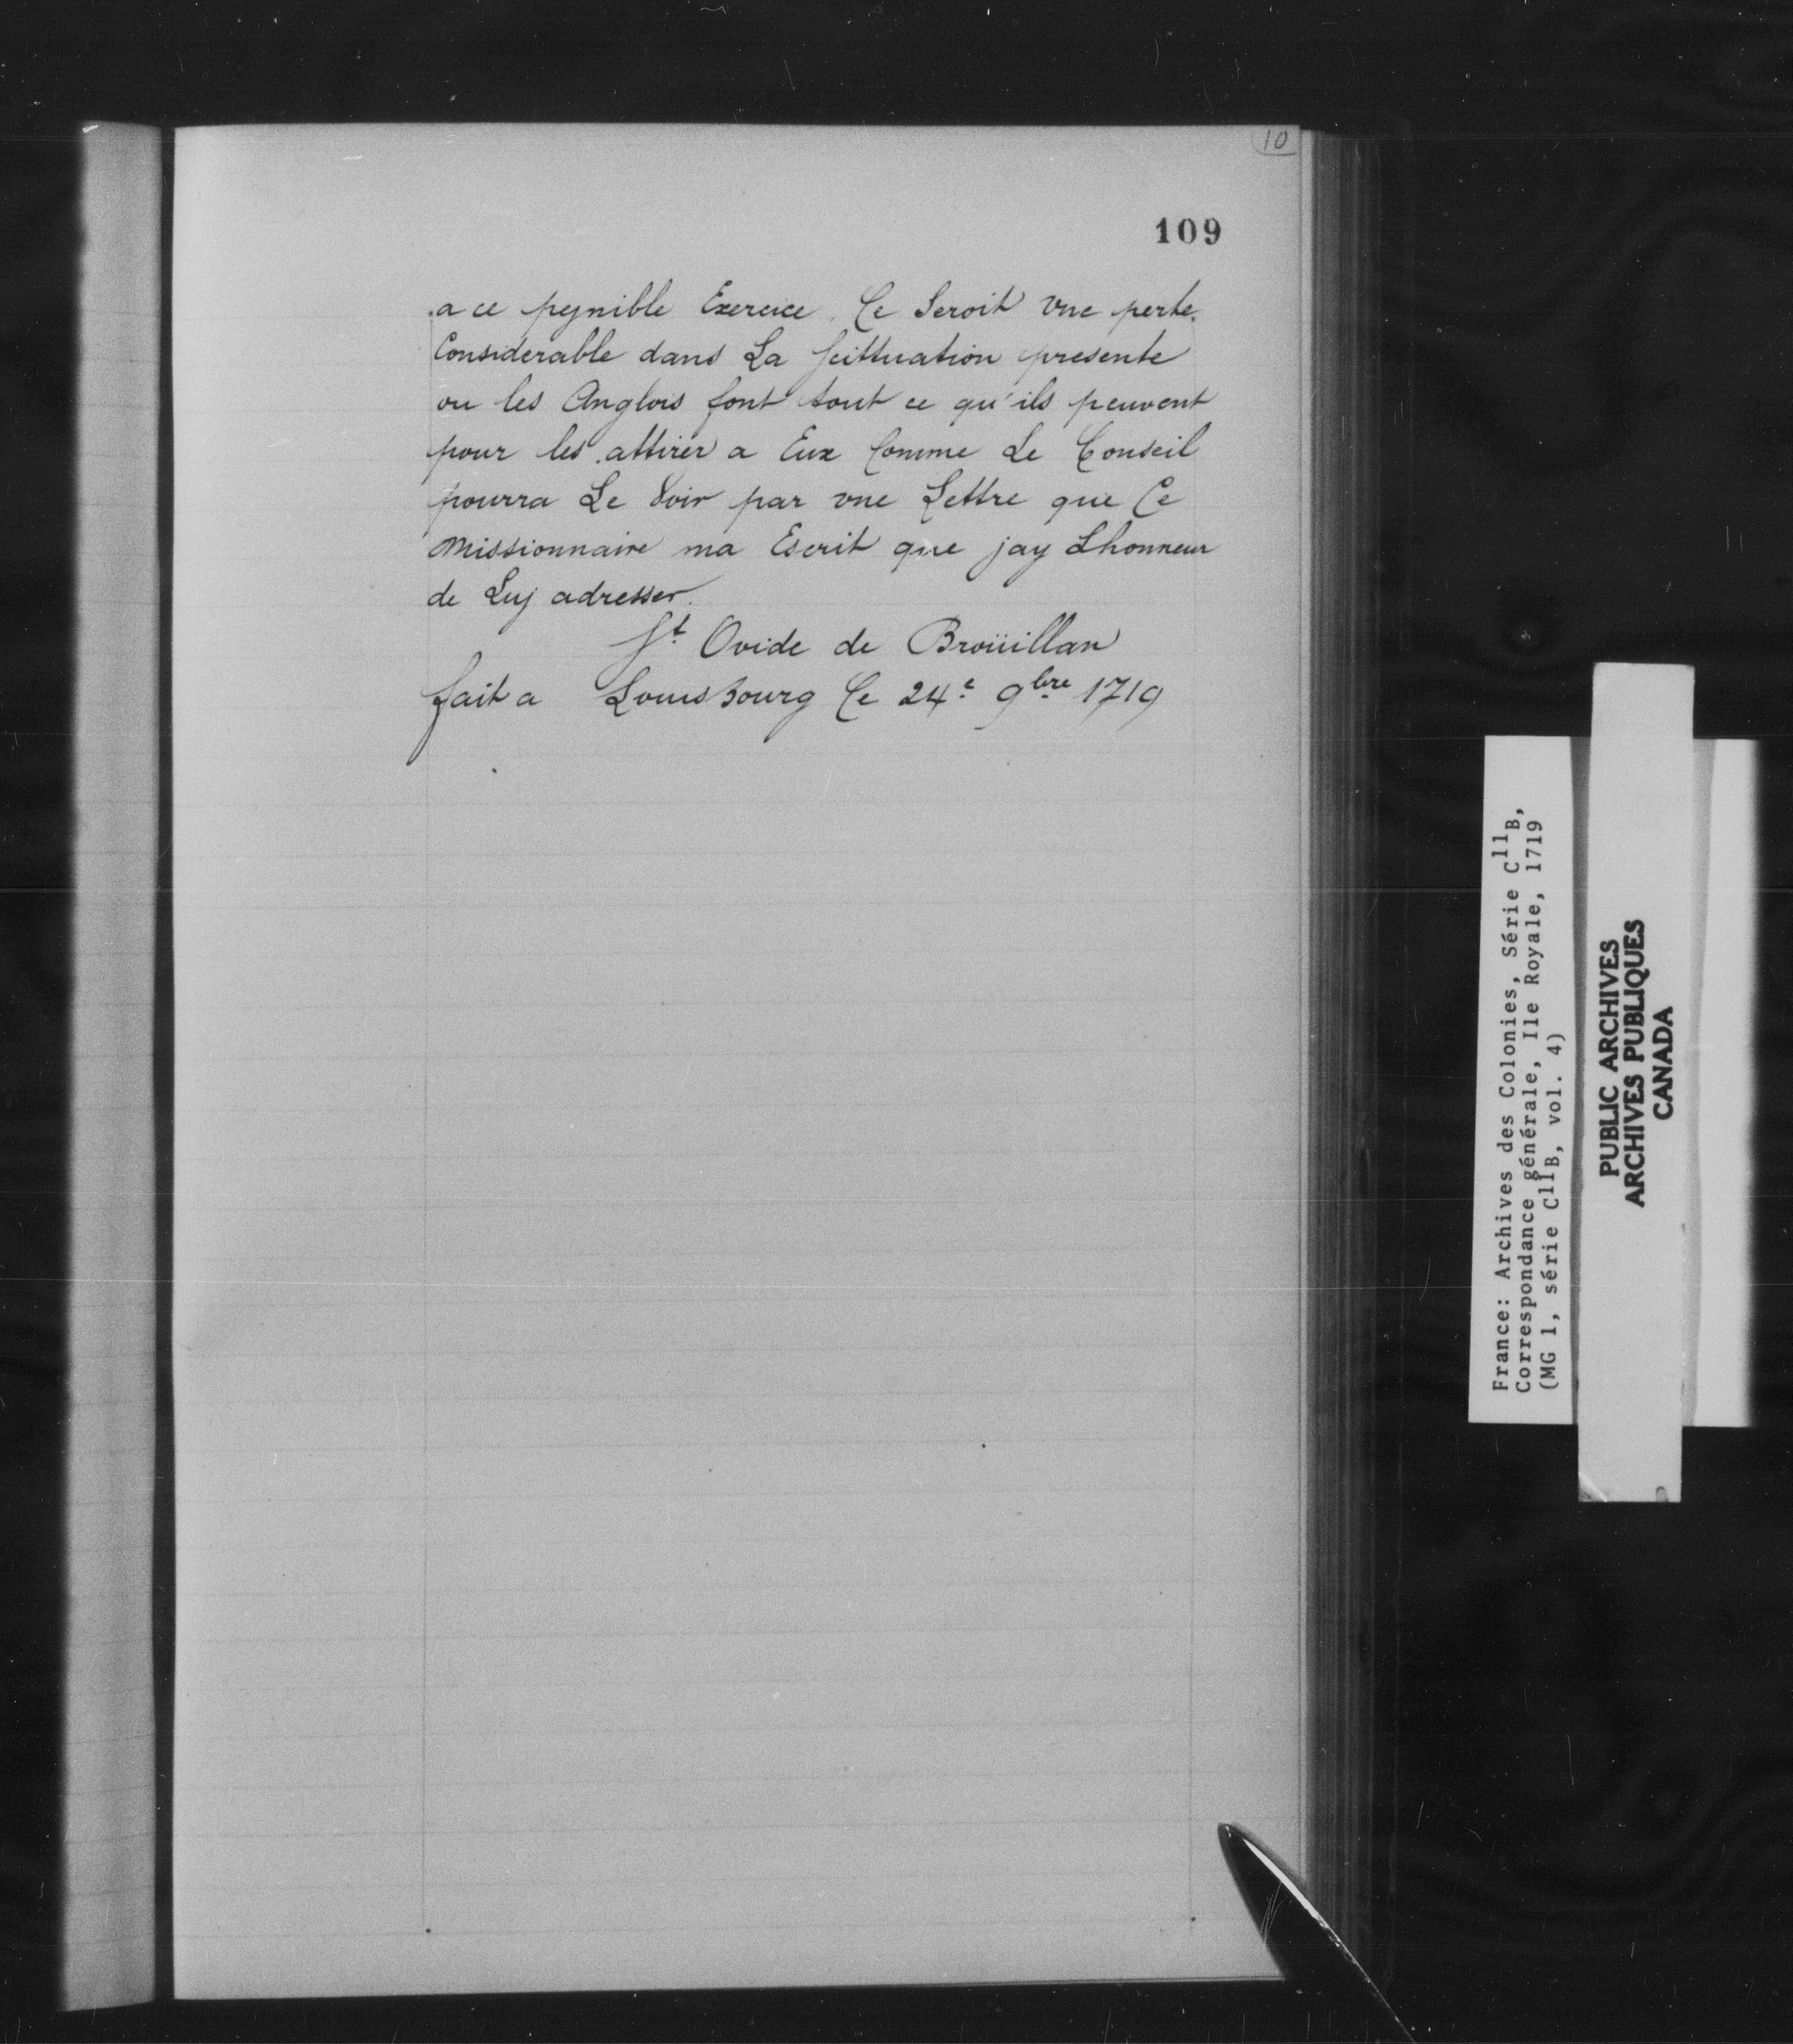 10
109
a ce peynible Exercice. Ce Seroit vne perte
Considerable dans La scittuation presente
ou les Anglois font tout ce qu'ils peuvent
pour les attirer a Eux Comme Le Conseil
pourra Le Voir par vne Lettre que Ce
Missionnaire ma Escrit que jay Lhonneur
de Luy adresser.
St Ovide de Broüillan
fait a Louisbourg Ce 24e 9bre 1719
France: Archives des Colonies, Série C11B,
Correspondance générale, Ile Royale, 1719
(MG 1, série C11B, vol. 4)
PUBLIC ARCHIVES
ARCHIVES PUBLIQUES
CANADA